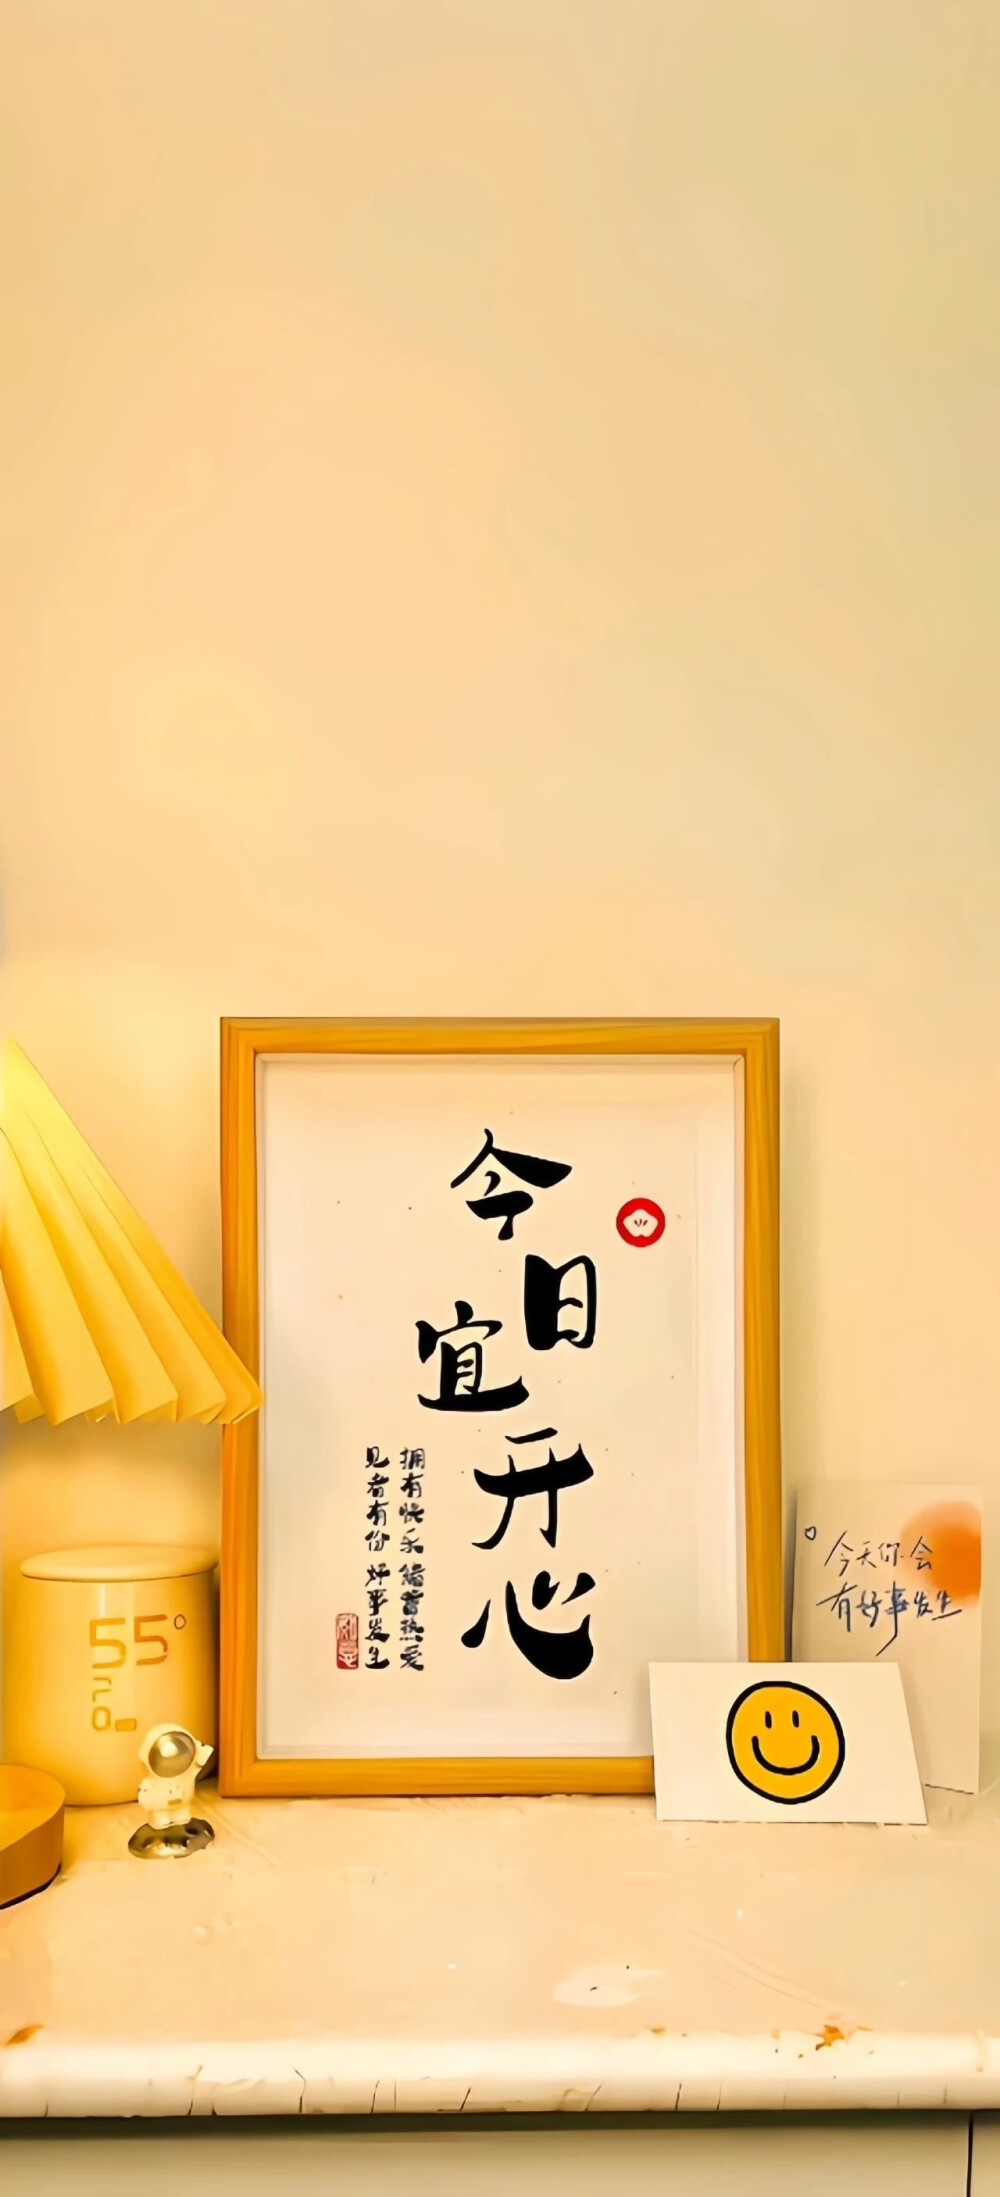 今日宜开心
拥有快乐 储蓄热爱
见者有份 好事发生
如意
今天你会
有好事发生
55°